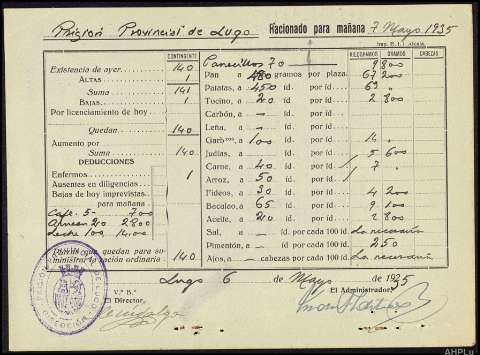 Prisión Provincial de Lugo Racionado para mañana 7 Mayo 1935
Imp. E. L. Alcalá.
CONTINGENTE KILOGRAMOS GRAMOS CABEZAS
Existencia de ayer 140 Panecillos 70 9 800
ALTAS 1 Pan a 480 gramos por plaza. 67 200
Suma 141 Patatas, a 450 id. por id. 63 "
BAJAS 1 Tocino, a 20 id. por id. 2 800
Por licenciamiento de hoy Carbón, a - id. por id.
Quedan 140 Leña, a - id. por id.
Aumento por Garbzos, a 100 id. por id. 14 "
Suma 140 Judías, a 5 600
DEDUCCIONES Carne, a 40 id. por id. 7 "
Enfermos 1 Arroz, a 50 id. por id.
Ausentes en diligencias Fideos, a 30 id. por id. 4 200
Bajas de hoy imprevistas Bacalao, a 65 id. por id. 9 100
para mañana Aceite, a 20 id. por id. 2 800
Café 5- 700 Sal, a - id. por cada 100 id. La necesaria
20 2 800 Pimentón, a id. por cada 100 id. 250
Leche 100, 14.00 Ajos, a - cabezas por cada 100 id. La necesaria
que quedan para suministrar la ración ordinaria 140
Lugo 6 de Mayo de 1935
V.º B.º El Administrador,
El Director,
AHPLu